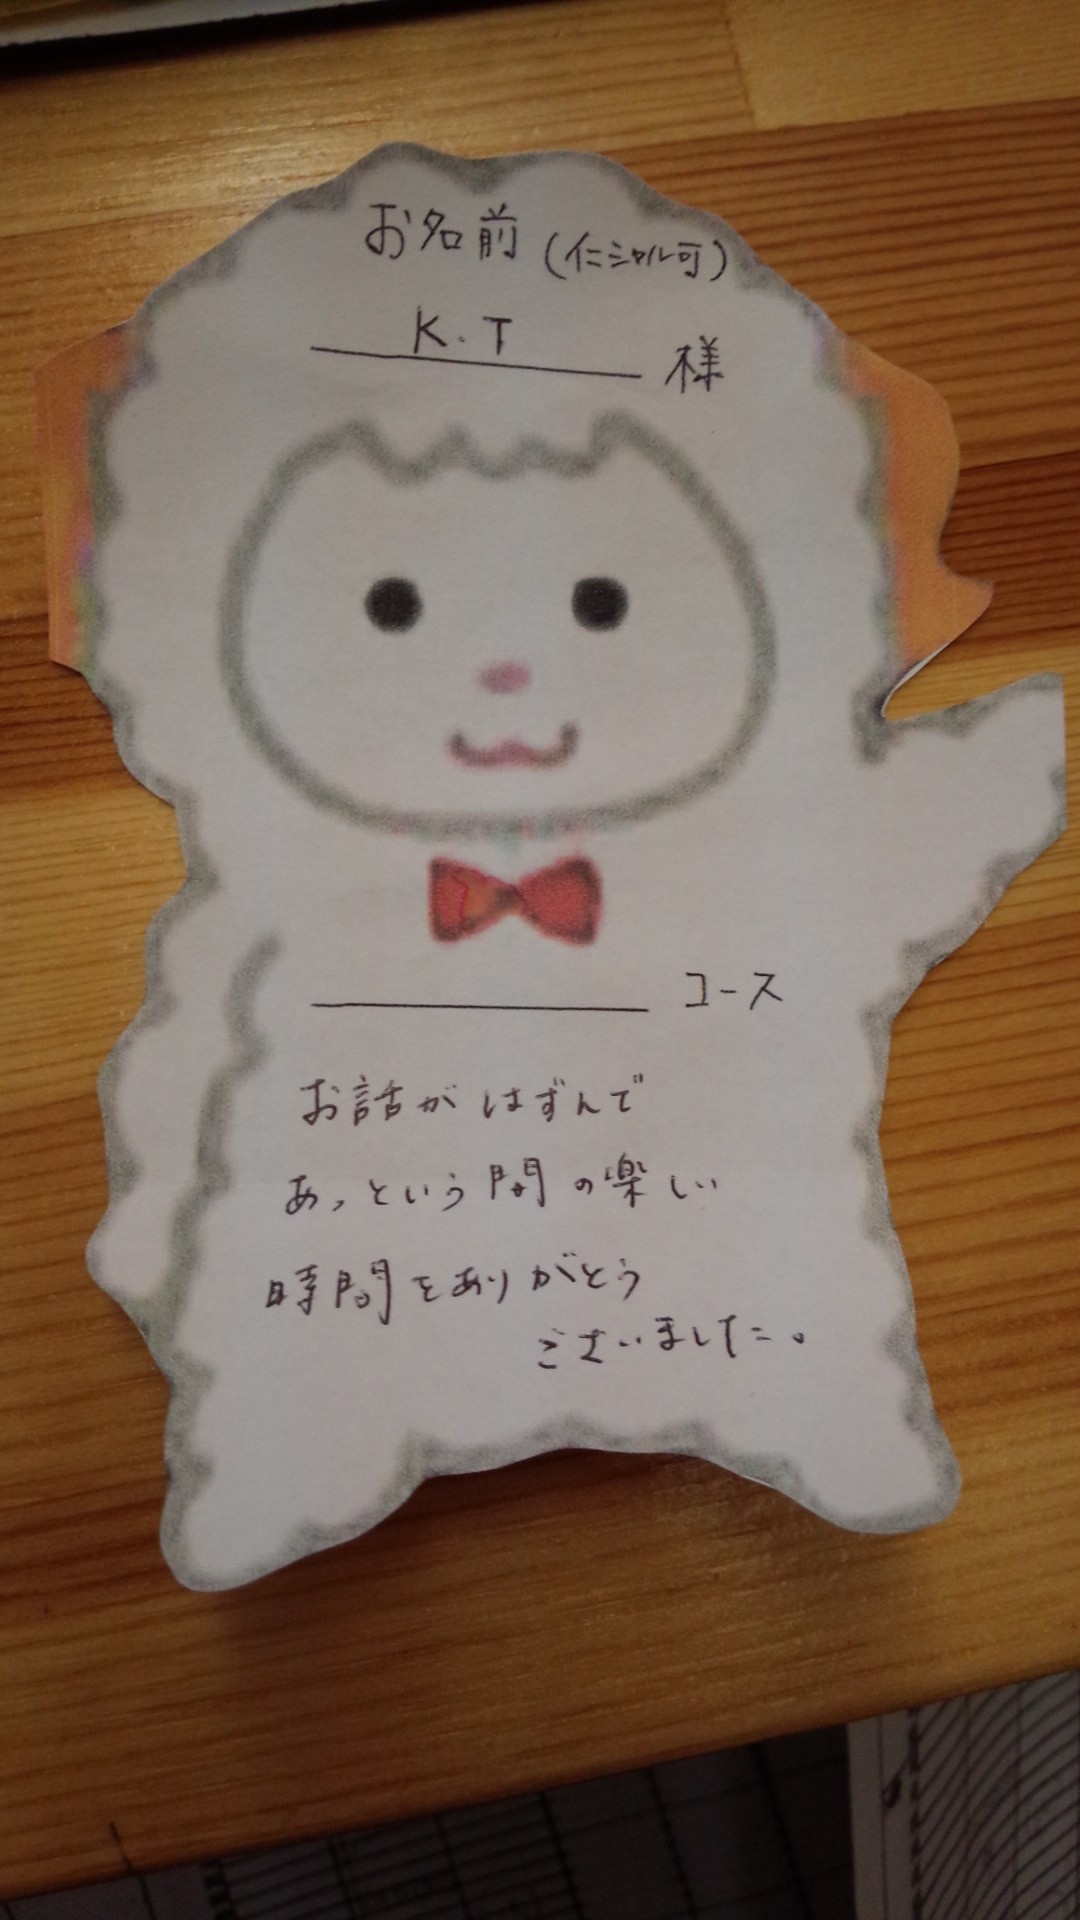 お名前(イニシャル可)
K.T 様
コース
お話がはずんで
あっという間の楽しい
時間をありがとう
ございました。